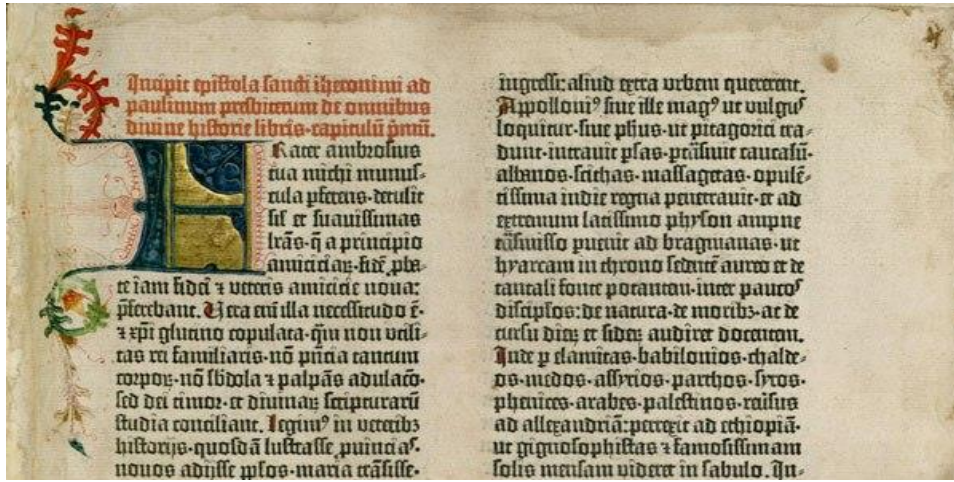 Incipit epistola sancti iheronimi ad
paulinum presbiterum de omnibus
divine historie libris·capitulū pmū.
Frater ambrosius
tua michi munus-
cula pferens·detulit
sil et suavissimas
lrās·q̄ a principio
amiciciaꝝ·fidē pba-
te iam fidei ⁊ veteris amicicie nova:
pferebant. Vera eni illa necessitudo ē·
⁊ xpi glutino copulata·qm non utili-
tas rei familiaris·nō pncia tantum
corpoꝝ·nō sbdola ⁊ palpās adulacō·
sed dei timor·et divinaꝝ scripturarū
studia conciliant. Legimꝰ in veteribꝫ
historijs·quosdā lustrasse puinciaˢ·
novos adijsse pplos·maria trāsisse·
ingressi: aliud extra urbem quererent.
Appolloniꝰ sive ille magꝰ ut vulgus
loquitur·sive phus·ut pitagorici tra-
dunt·intravit psas·ptrāsivit caucasū·
albanos·scithas·massagetas·opulē-
tissima indie regna penetravit·et ad
extremum latissimo physon ampne
trāsmisso pvenit ad bragmanas·ut
hyarcam in throno sedentē aureo et de
tantali fonte potantem·inter paucos
disciplos·de natura·de moribꝫ·ac de
cursu dieꝝ et sideꝝ audiret docentem.
Inde p elamitas·babilonios·chalde-
os·medos·assyrios·parthos·syros·
phenices·arabes·palestinos·reversus
ad allexandriā: perrexit ad ethiopiā·
ut gignosophistas ⁊ famosissimam
solis mensam videret in sabulo. In-